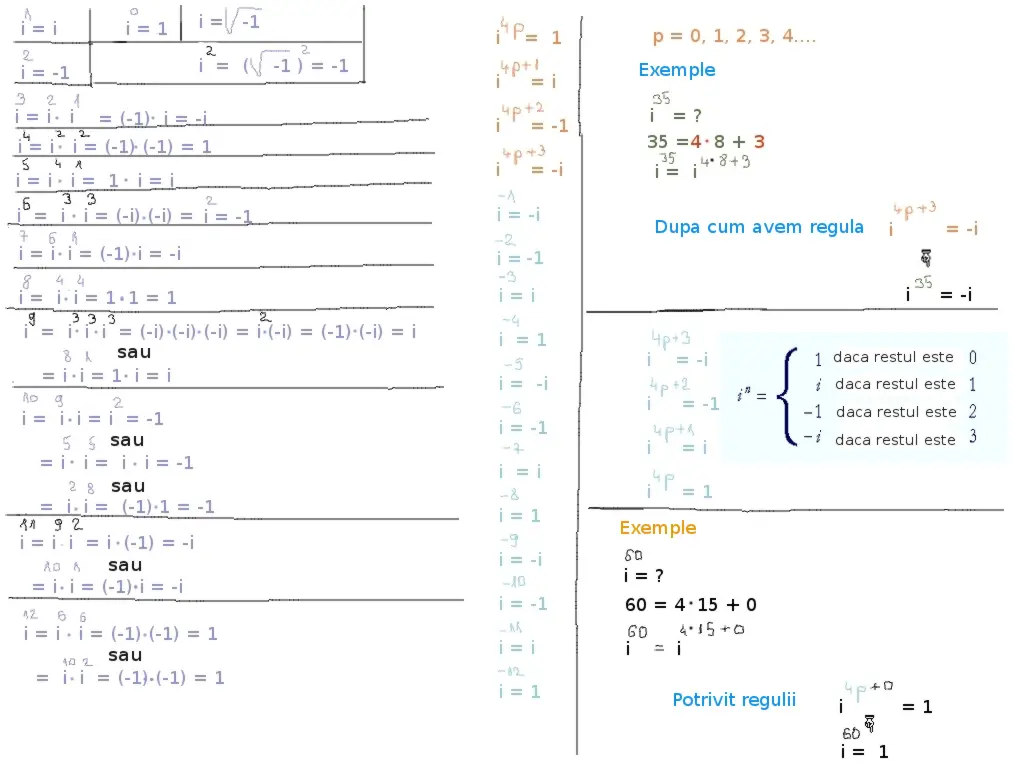 i¹ = i
i⁰ = 1
i = √-1
i² = -1
i² = (√-1)² = -1
i³ = i² · i¹ = (-1)· i = -i
i⁴ = i² · i² = (-1)·(-1) = 1
i⁵ = i⁴ · i¹ = 1 · i = i
i⁶ = i³ · i³ = (-i)·(-i) = i² = -1
i⁷ = i⁶ · i¹ = (-1)·i = -i
i⁸ = i⁴ · i⁴ = 1 · 1 = 1
i⁹ = i³ · i³ · i³ = (-i)·(-i)·(-i) = i²·(-i) = (-1)·(-i) = i
sau
= i⁸ · i¹ = 1 · i = i
i¹⁰ = i⁹ · i = i² = -1
sau
= i⁵ · i⁵ = i · i = -1
sau
= i² · i⁸ = (-1)·1 = -1
i¹¹ = i⁹ · i² = i·(-1) = -i
sau
= i¹⁰ · i¹ = (-1)·i = -i
i¹² = i⁶ · i⁶ = (-1)·(-1) = 1
sau
= i¹⁰ · i² = (-1)·(-1) = 1
i⁴ᵖ = 1
i⁴ᵖ⁺¹ = i
i⁴ᵖ⁺² = -1
i⁴ᵖ⁺³ = -i
i⁻¹ = -i
i⁻² = -1
i⁻³ = i
i⁻⁴ = 1
i⁻⁵ = -i
i⁻⁶ = -1
i⁻⁷ = i
i⁻⁸ = 1
i⁻⁹ = -i
i⁻¹⁰ = -1
i⁻¹¹ = i
i⁻¹² = 1
p = 0, 1, 2, 3, 4....
Exemple
i³⁵ = ?
35 =4·8 + 3
i³⁵ = i⁴·⁸⁺³
Dupa cum avem regula i⁴ᵖ⁺³ = -i
i³⁵ = -i
i⁴ᵖ⁺³ = -i
i⁴ᵖ⁺² = -1
i⁴ᵖ⁺¹ = i
i⁴ᵖ = 1
iⁿ =
1 daca restul este 0
i daca restul este 1
−1 daca restul este 2
−i daca restul este 3
Exemple
i⁶⁰ = ?
60 = 4·15 + 0
i⁶⁰ = i⁴·¹⁵⁺⁰
Potrivit regulii i⁴ᵖ⁺⁰ = 1
i⁶⁰ = 1